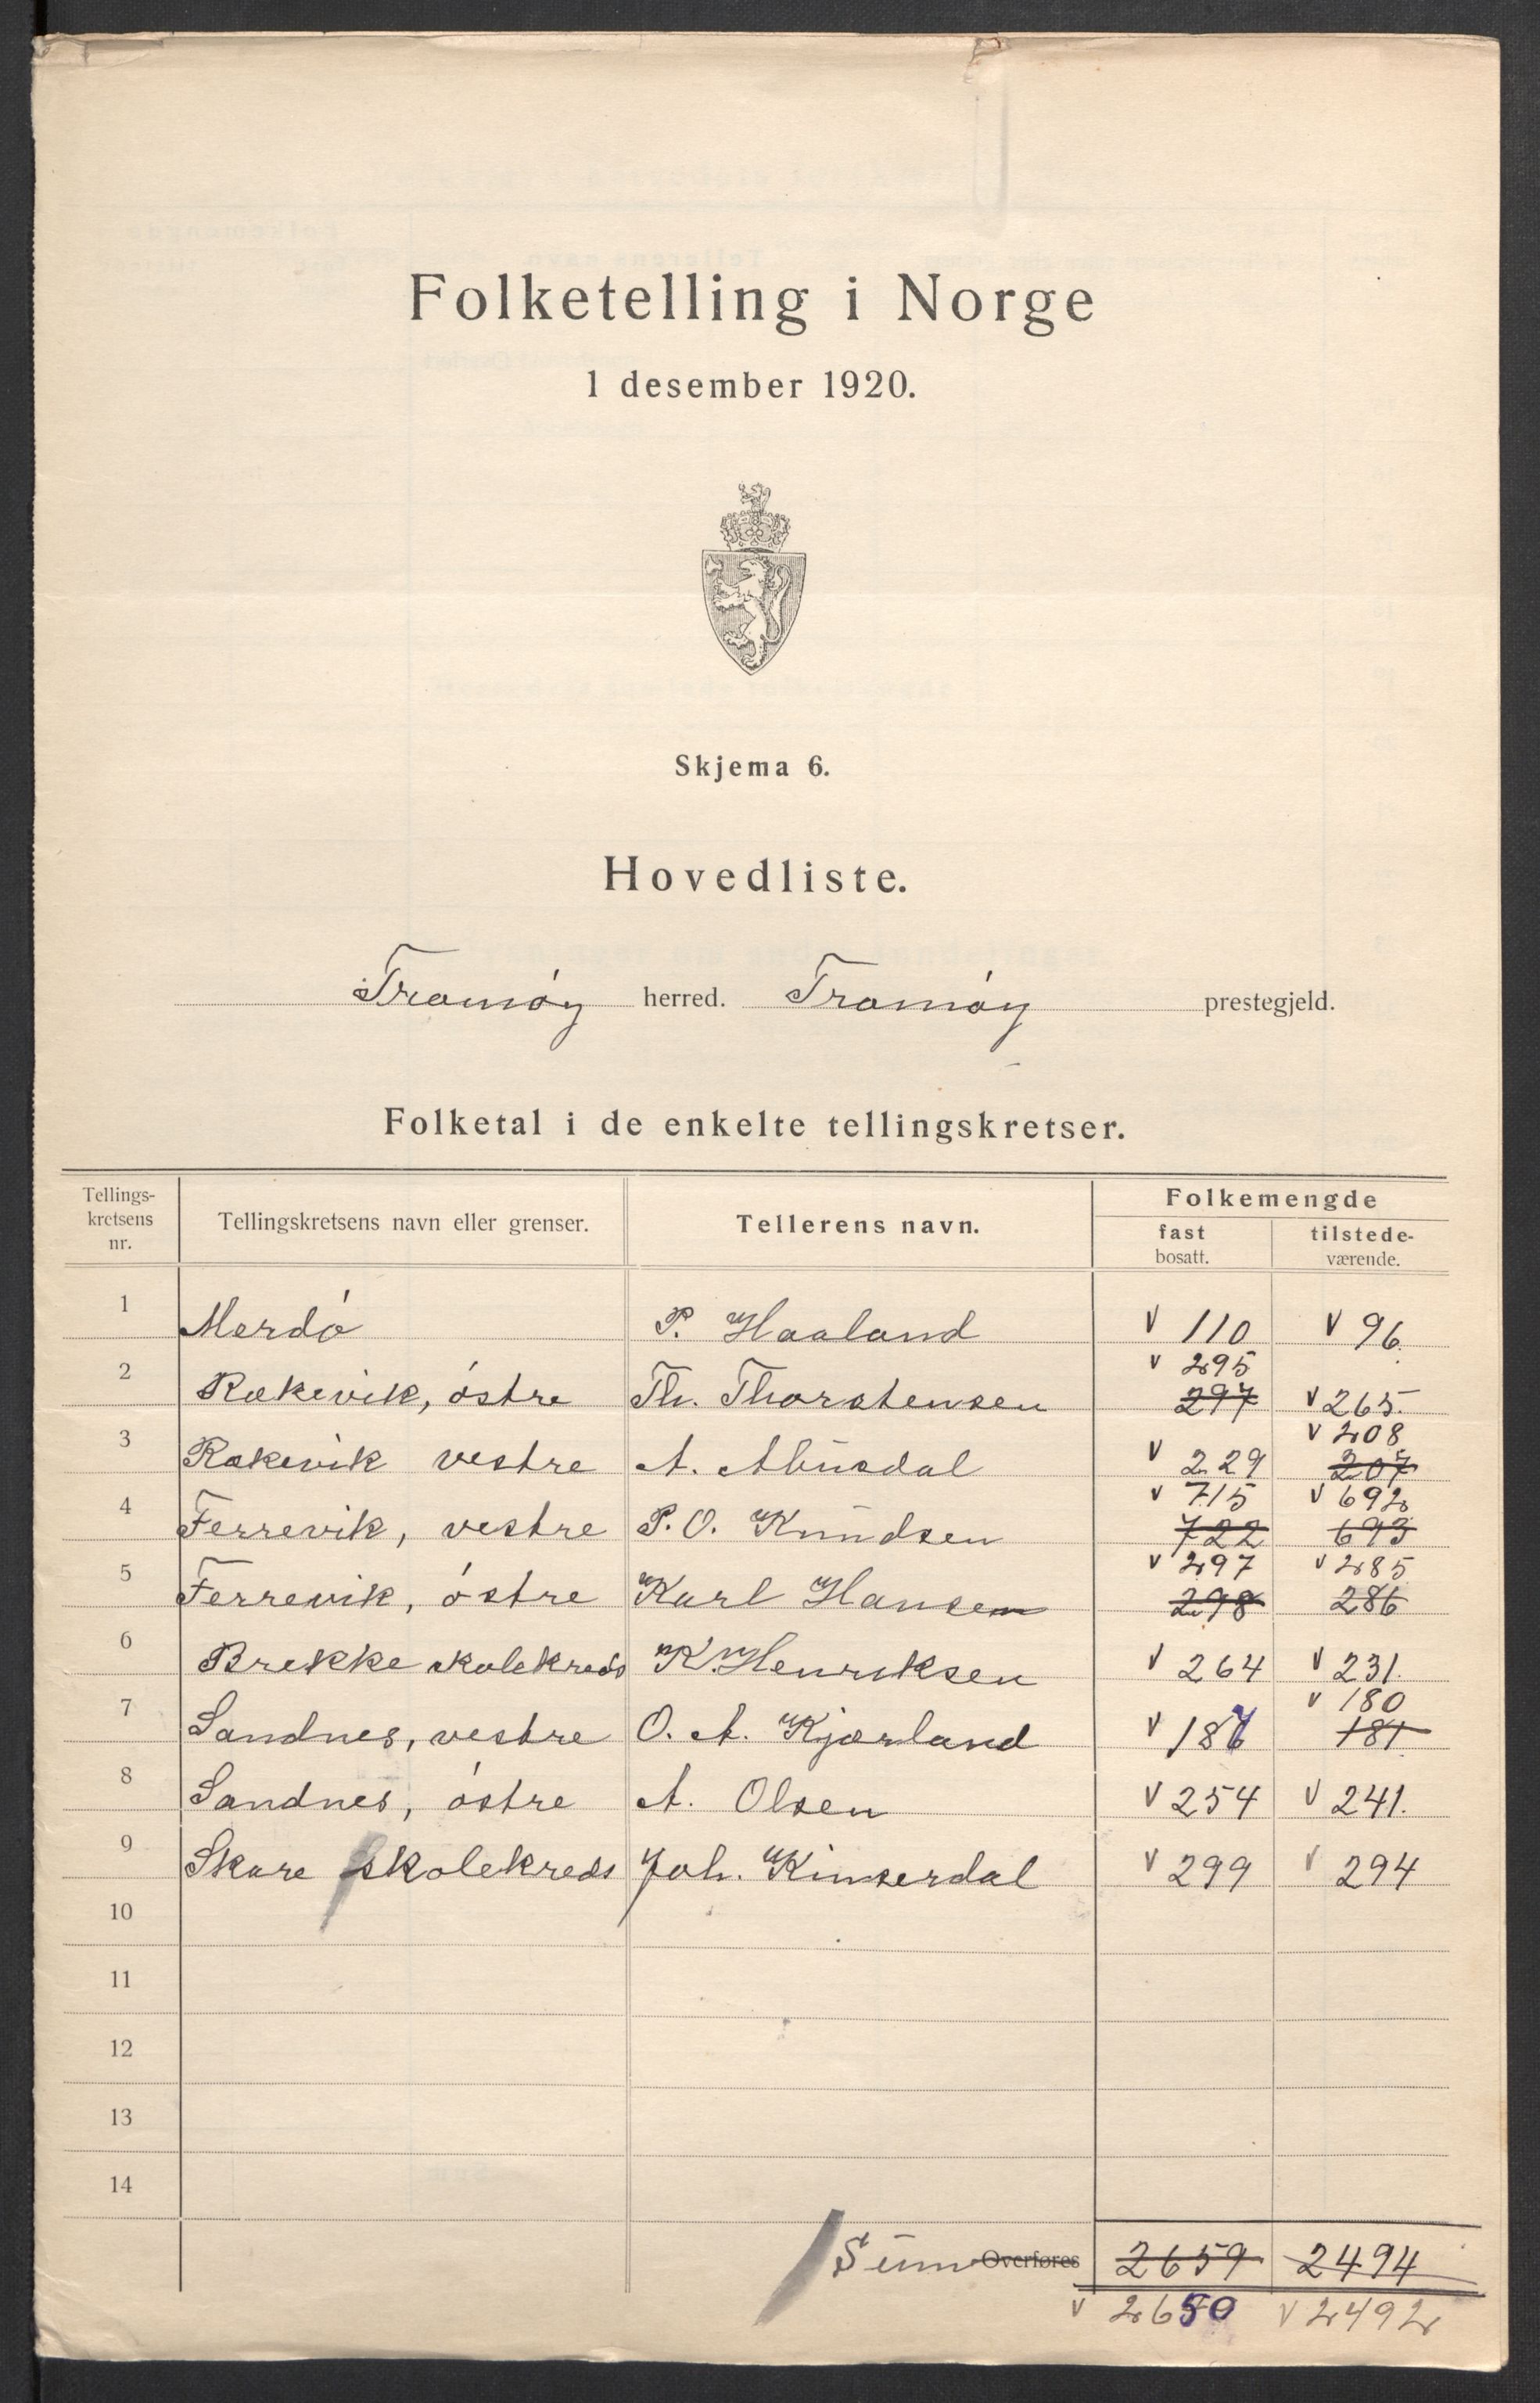 Folketelling i Norge
1 desember 1920.
Skjema 6.
Hovedliste.
Tromöy herred. Tromöy prestegjeld.
Folketal i de enkelte tellingskretser.
Tellings-kretsens nr. Tellingskretsens navn eller grenser. Tellerens navn. Folkemengde fast bosatt. tilstede-værende.
1 Merdö P. Haaland v 110 v 96.
v 295
2 Rækevik, östre Th. Thorstensen 297 v 265.
v 208
3 Rækevik vestre A. Abusdal v 229 207
v 715 v 692
4 Færrevik, vestre P. O. Knudsen 722 693
v 297 v 285
5 Færrevik, östre Karl Hansen 298 286
6 Brekke skolekreds K. Henriksen v 264 v 231.
v 180
7 Sandnes, vestre O. A. Kjærland v 187 181
8 Sandnes, östre A. Olsen v 254 v 241.
9 Skare skolekreds Joh. Kinserdal v 299 v 294
10
11
12
13
14
Sum Overføres 2659 2494
v 2650 v 2492